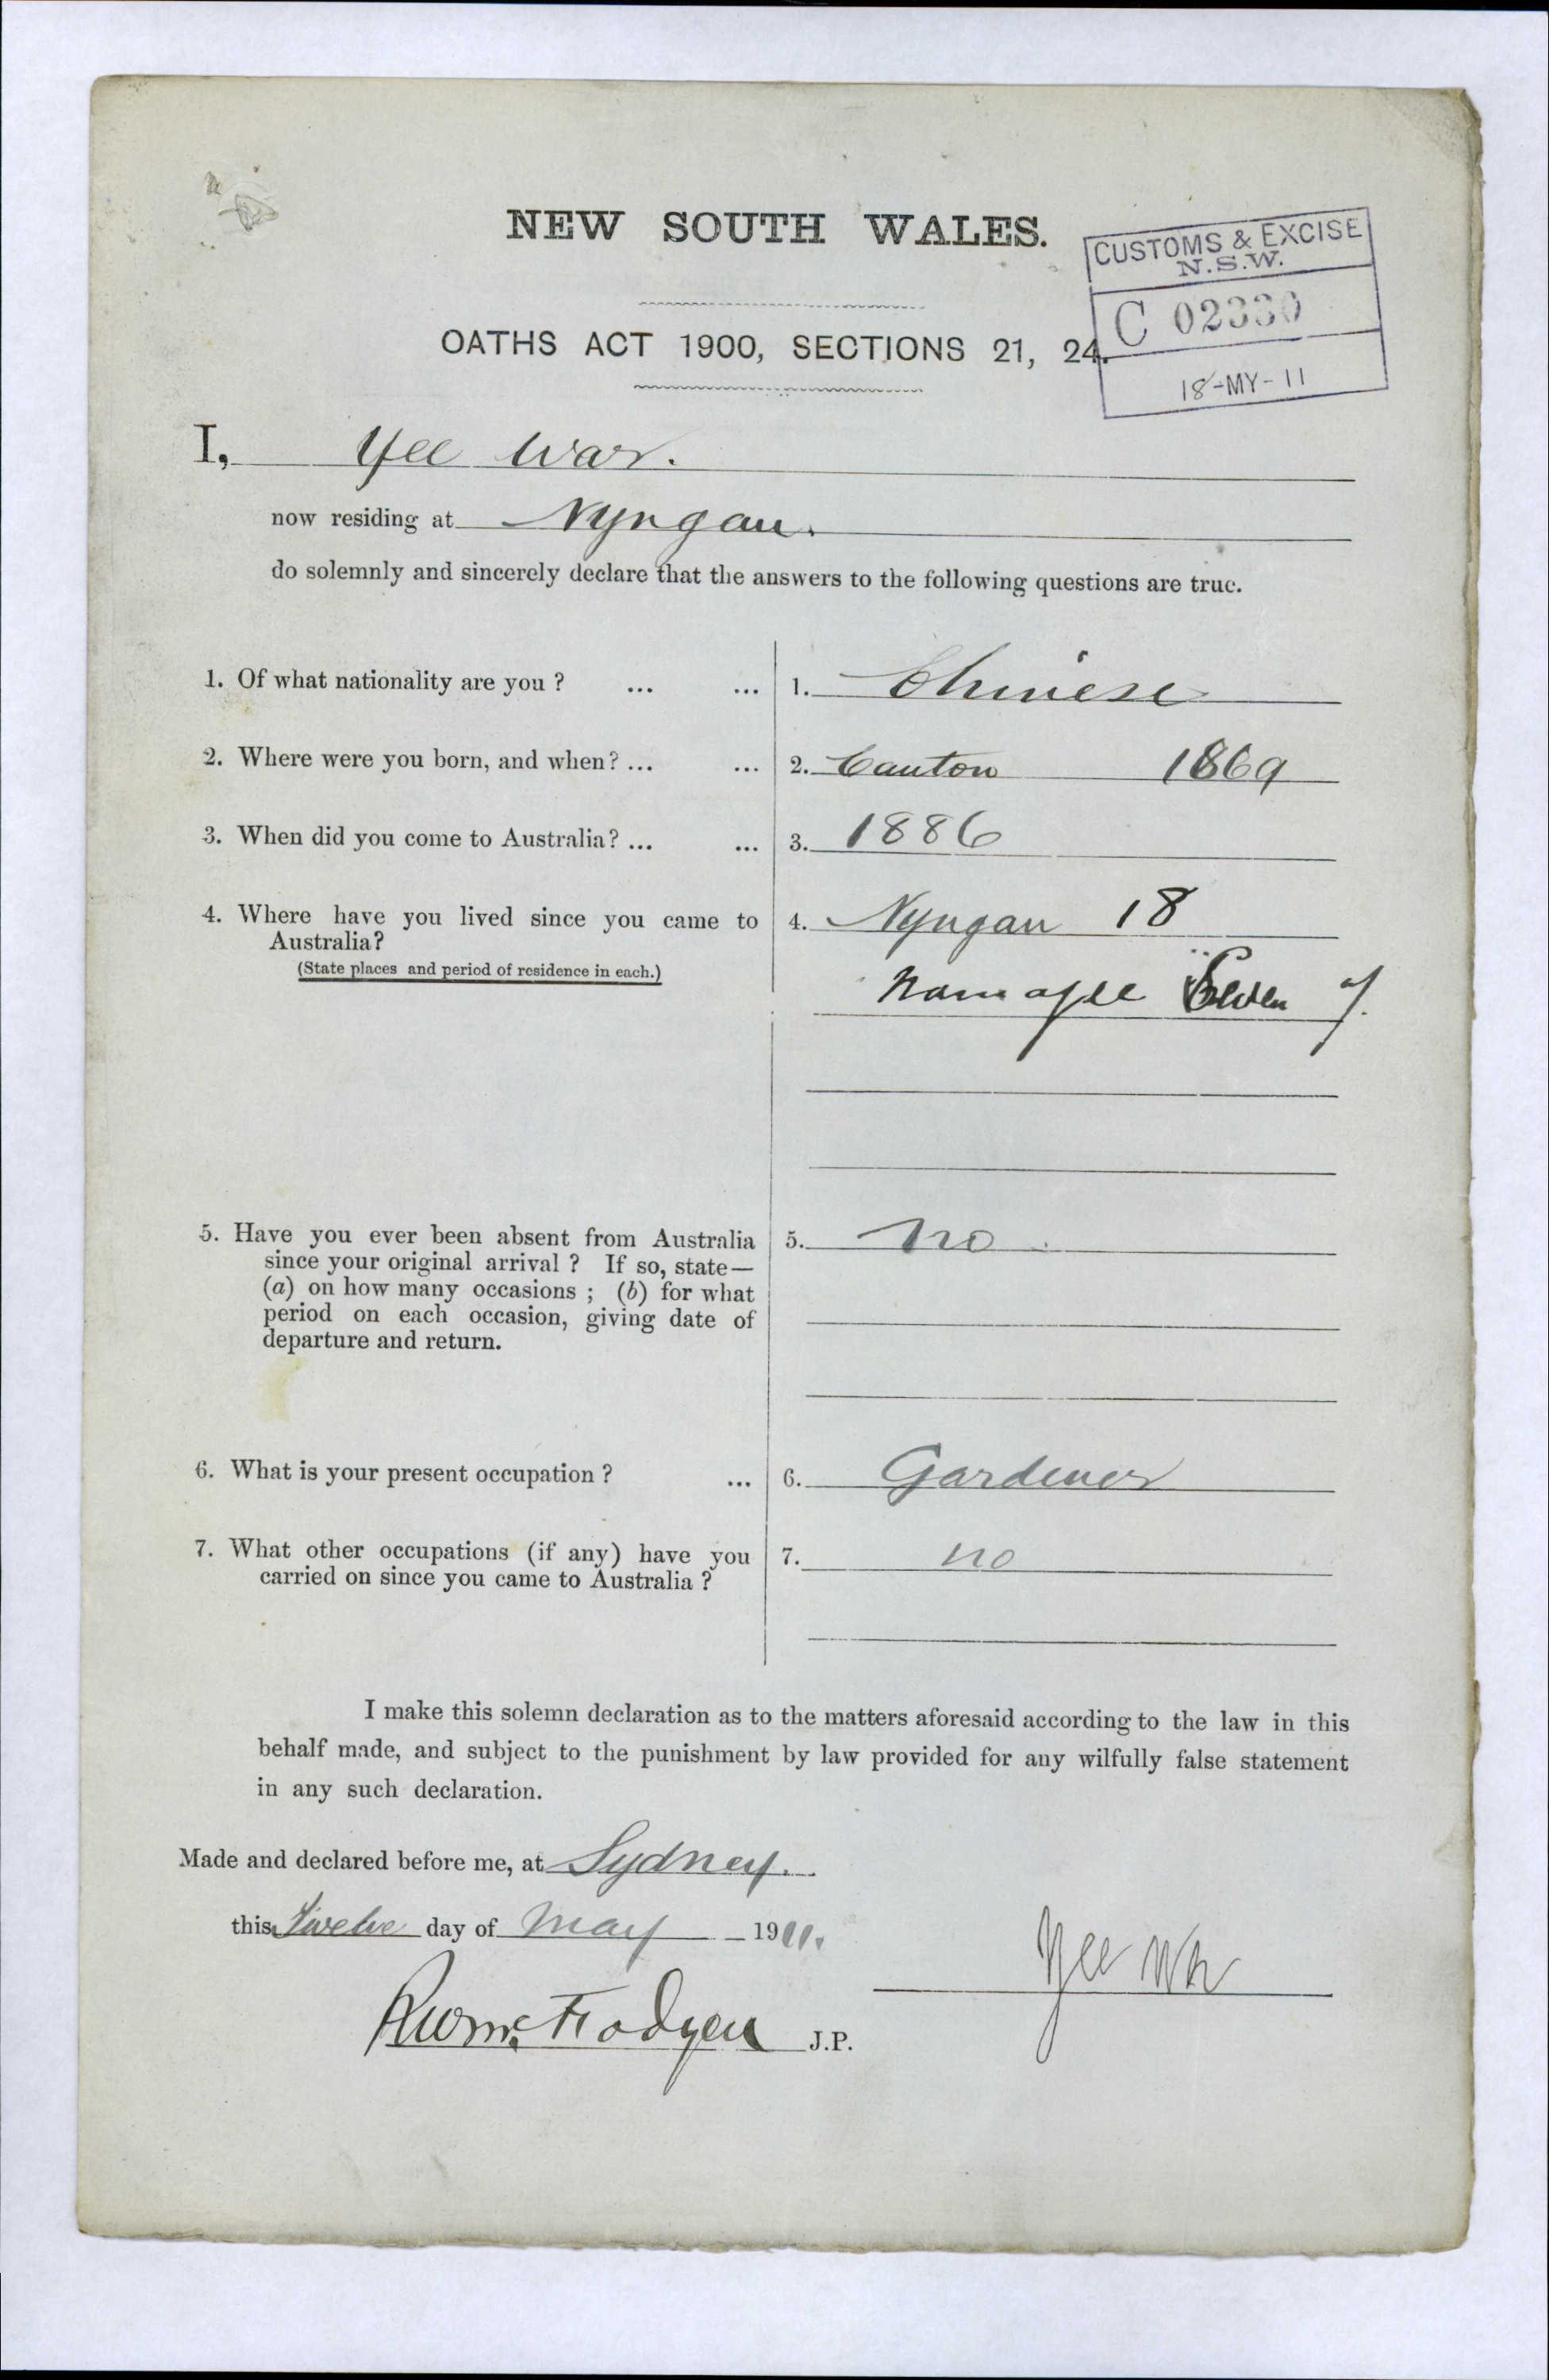 NEW SOUTH WALES.
CUSTOMS & EXCISE
N.S.W.
C 02330
18-MY-11
OATHS ACT 1900, SECTIONS 21, 24.
I, Yee War.
now residing at Nyngan.
do solemnly and sincerely declare that the answers to the following questions are true.
1. Of what nationality are you ? ... ... 1. Chinese
2. Where were you born, and when? ... ... 2. Canton 1869
3. When did you come to Australia? ... ... 3. 1886
4. Where have you lived since you came to 4. Nyngan 18
Australia?
(State places and period of residence in each.)
Namagee Seven y.
5. Have you ever been absent from Australia 5. no.
since your original arrival ? If so, state—
(a) on how many occasions ; (b) for what
period on each occasion, giving date of
departure and return.
6. What is your present occupation ? ... 6. Gardener
7. What other occupations (if any) have you 7. no
carried on since you came to Australia ?
I make this solemn declaration as to the matters aforesaid according to the law in this
behalf made, and subject to the punishment by law provided for any wilfully false statement
in any such declaration.
Made and declared before me, at Sydney.
this Twelve day of May 1911.
Yee Wh
J.P.